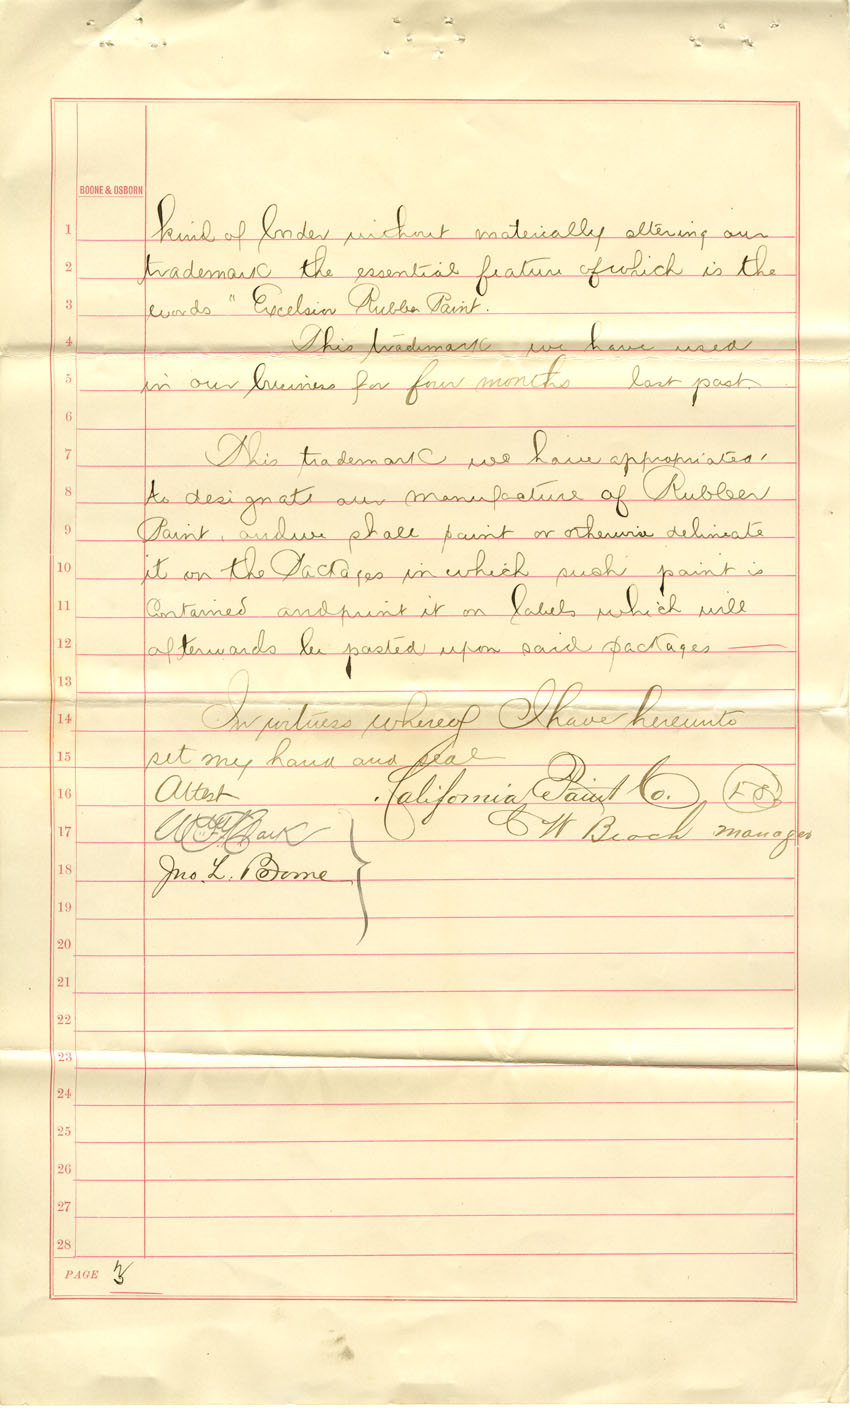 BOONE & OSBORN
1 kind of border without materially altering our
2 trademark the essential feature of which is the
3 words " Excelsior Rubber Paint.
4 This trademark we have used
5 in our business for four months last past.
6
7 This trademark we have appropriated
8 to designate our manufacture of Rubber
9 Paint, and we shall paint or otherwise delineate
10 it on the Packages in which such paint is
11 Contained and print it on labels which will
12 afterwards be pasted upon said packages —
13
14 In witness whereof I have hereunto
15 set my hand and seal
16 Attest California Paint Co. LS
17 Clark C W Beach manager
18 Jno. L. Boone
19
20
21
22
23
24
25
26
27
28
PAGE 3